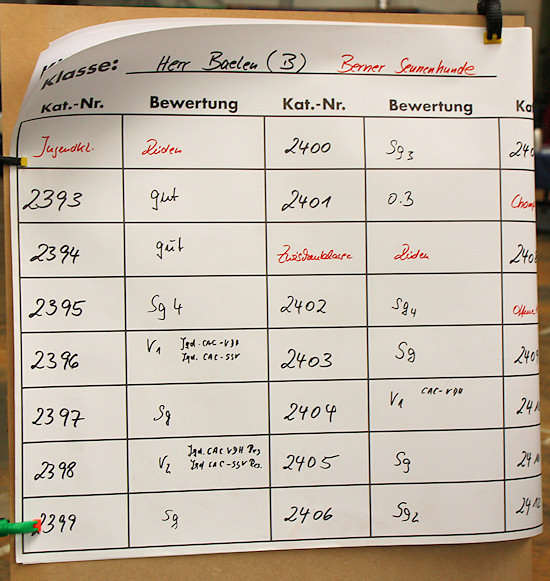 Klasse: Herr Baelen (B) Berner Sennenhunde
Kat.-Nr. Bewertung Kat.-Nr. Bewertung Kat
Jugendkl. Rüden 2400 Sg3 240
2393 gut 2401 o.3 Cham
2394 gut Zwischenklasse Rüden 240
2395 Sg 4 2402 Sg4 Offene
2396 V1 Jgd. CAC-VDH 2403 Sg 2409
Jgd. CAC-SSV
2397 Sg 2404 V1 CAC-VDH 241
2398 V2 Jgd. CAC VDH Res 2405 Sg 241
Jgd CAC-SSV Res.
2399 Sg 2406 Sg2 241